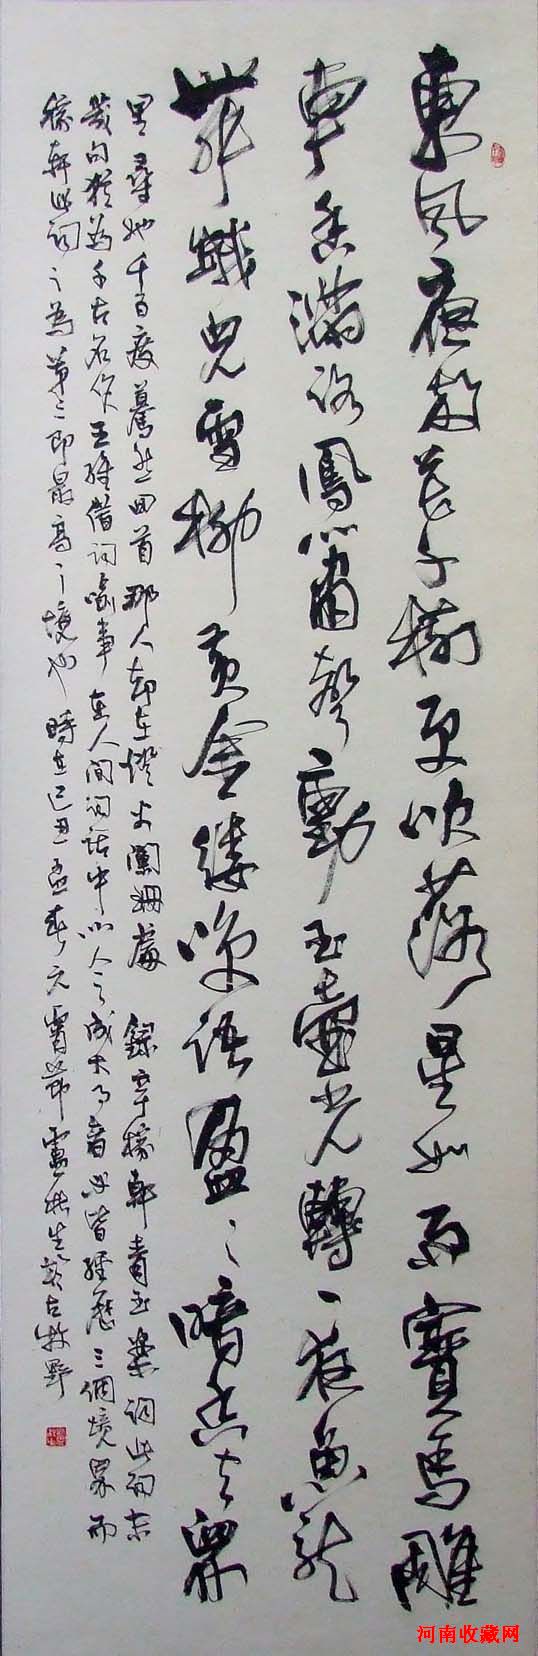 東風夜放花千樹更吹落星如雨寶馬雕
車香滿路鳳簫聲動玉壺光轉一夜魚龍
舞蛾兒雪柳黃金縷笑語盈々暗香去眾
里尋她千百度驀然回首那人却在燈火闌珊處 錄辛稼軒青玉案詞此詞末
幾句猶為千古名作王維借詞喻事在人間詞話中以人之成大事者必皆經歷三個境界而
稼軒此詞之為第三即最高之境也 時在己丑孟春元宵節 古牧野
河南收藏网